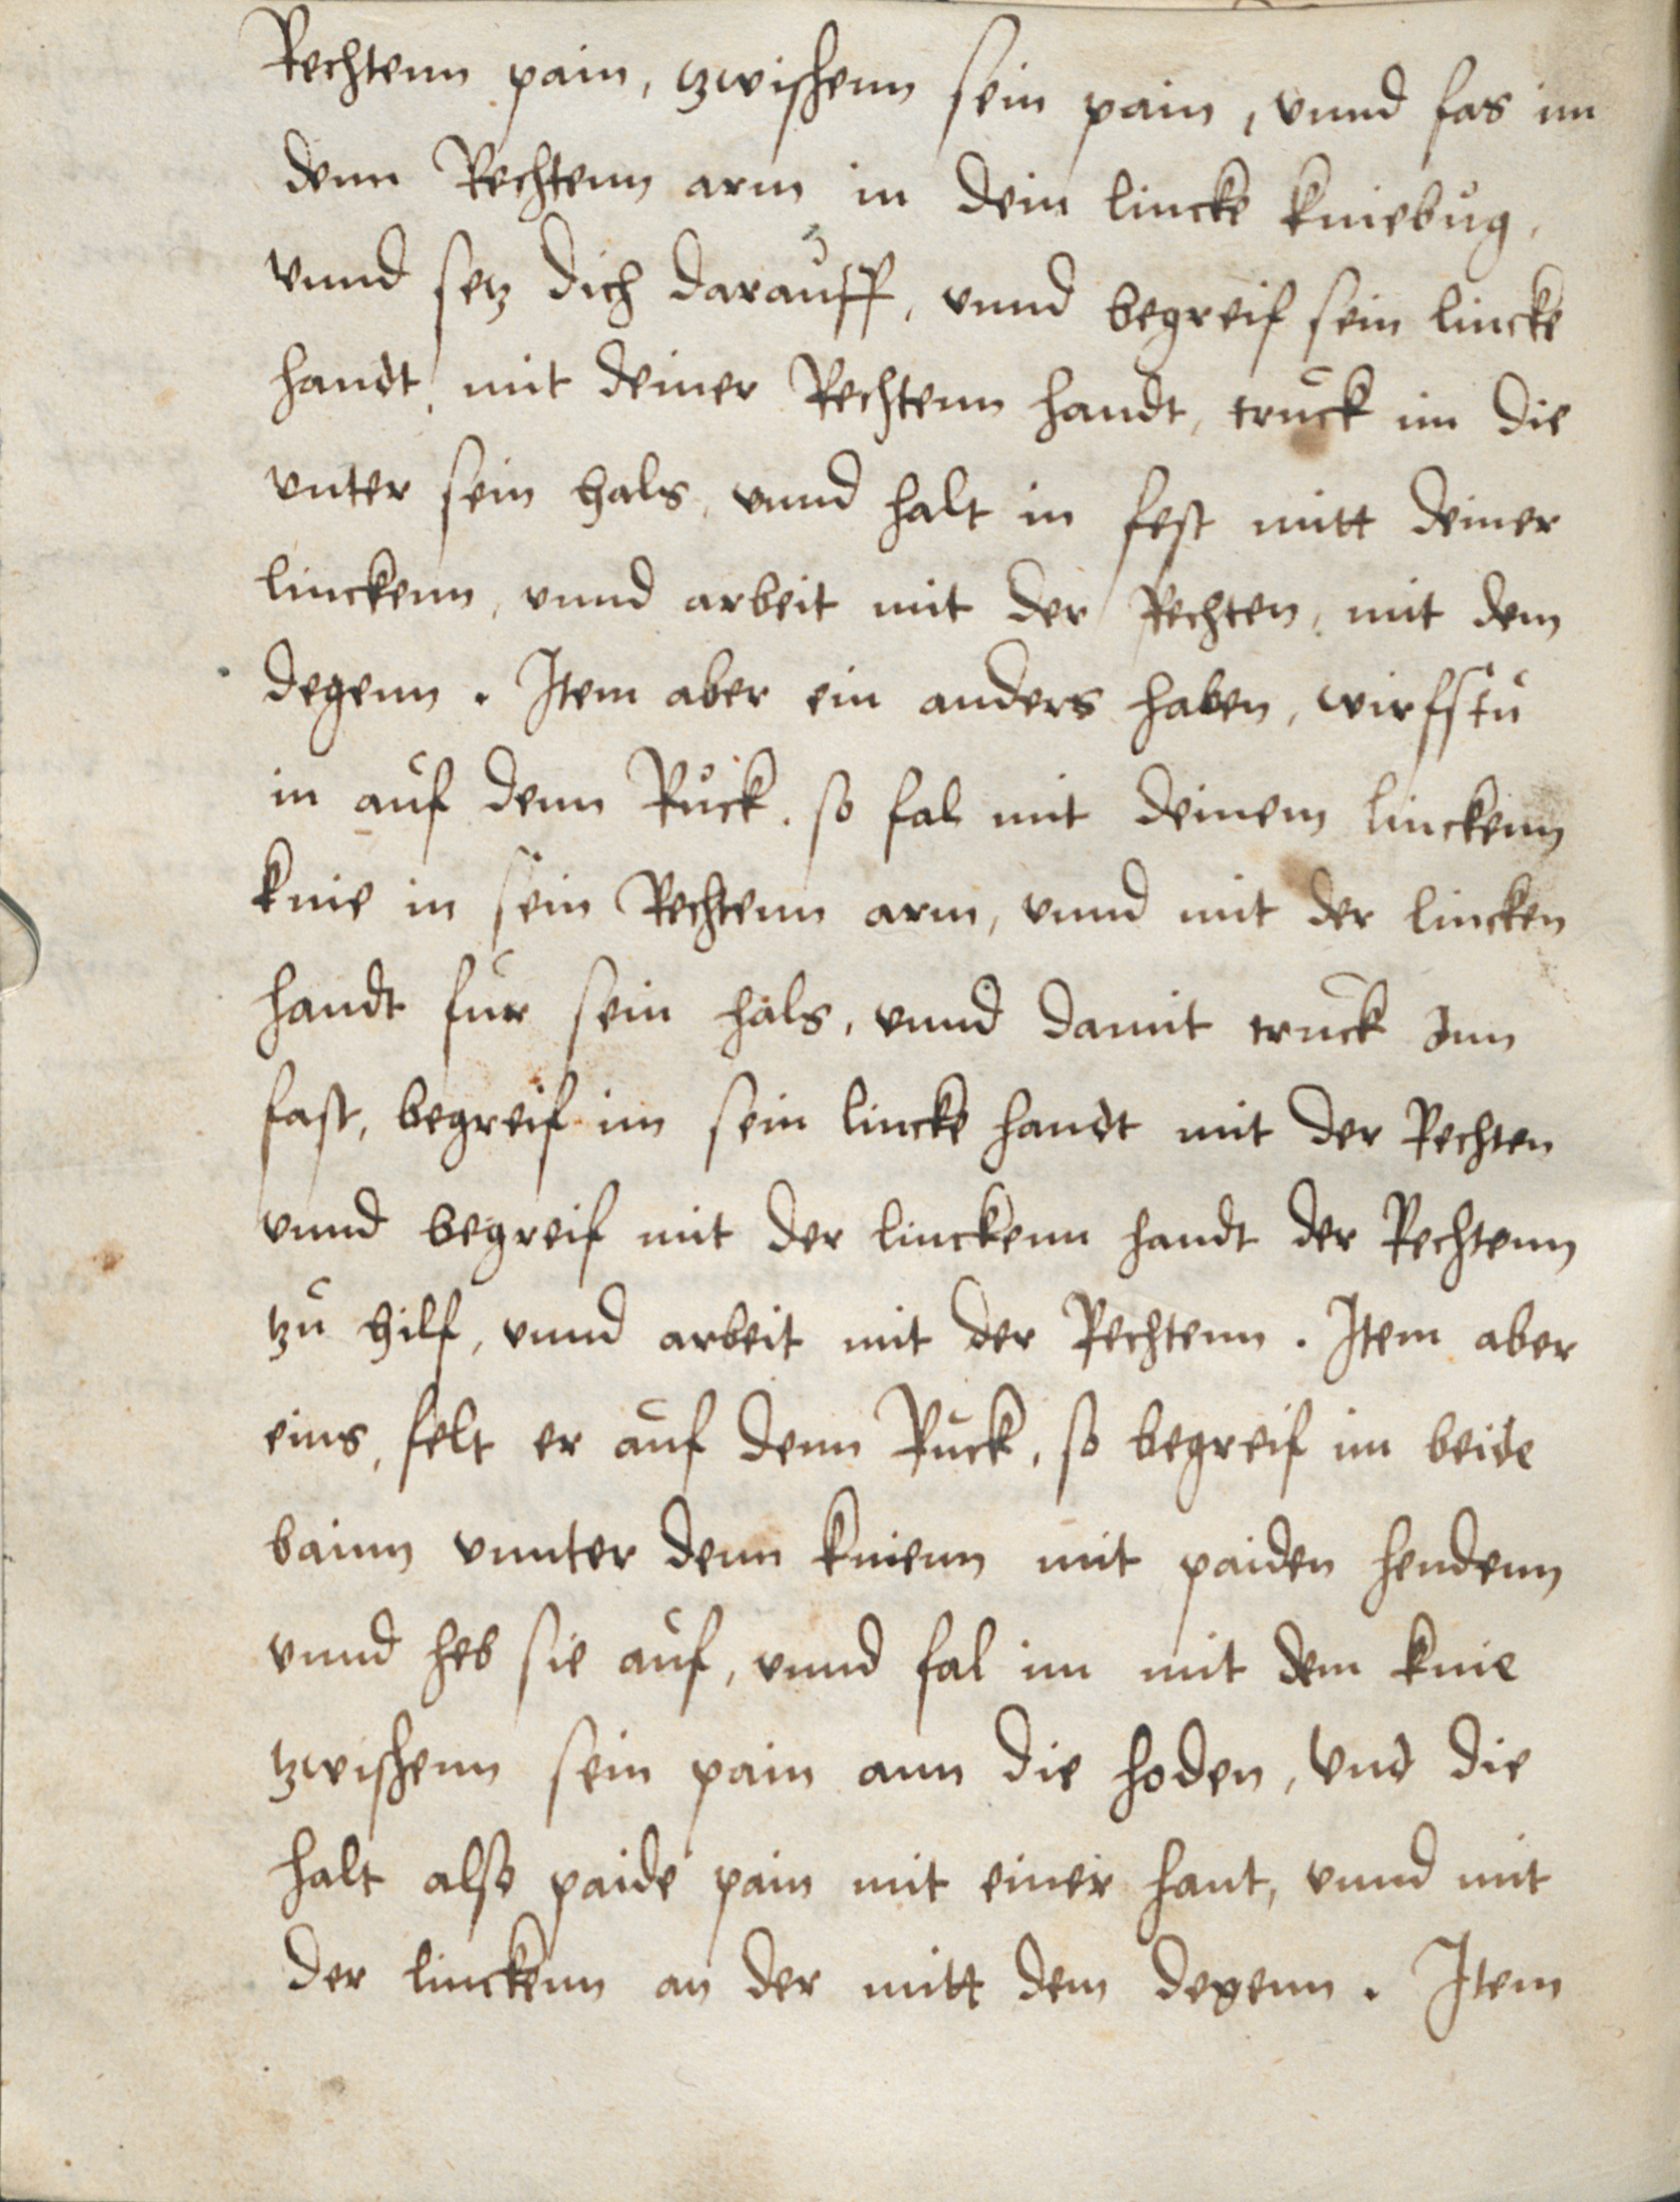 Rechtenn pain, tzwischenn sein pain, vnnd fas im
denn Rechtenn arm in dein lincke kniebůg,
vnnd setz dich daraůff, vnnd begreif sein lincke
handt, mit deiner Rechtenn handt, trůck im die
vnter sein hals, vnnd halt in fest mitt deiner
linckenn, vnnd arbeit mit der Rechten, mit dem
degenn. Item aber ein anders haben, wirfstů
in aůf denn Růck. so fal mit deinem linckenn
knie in sein Rechtenn arm, vnnd mit der lincken
handt fůr sein hals, vnnd damit trůck Inn
fast, begreif im sein lincke handt mit der Rechten
vnnd begreif mit der linckenn handt der Rechtenn
tzů hilf, vnnd arbeit mit der Rechtenn. Item aber
eins, felt er aůf denn Růck, so begreif im beide
bainn vnnter denn knienn mit paiden hendenn
vnnd heb sie aůf, vnnd fal im mit dem knie
tzwischenn sein pain ann die hoden, vnd die
halt also paide pain mit einer hant, vnnd mit
der linckenn an der mitt dem degenn. Item